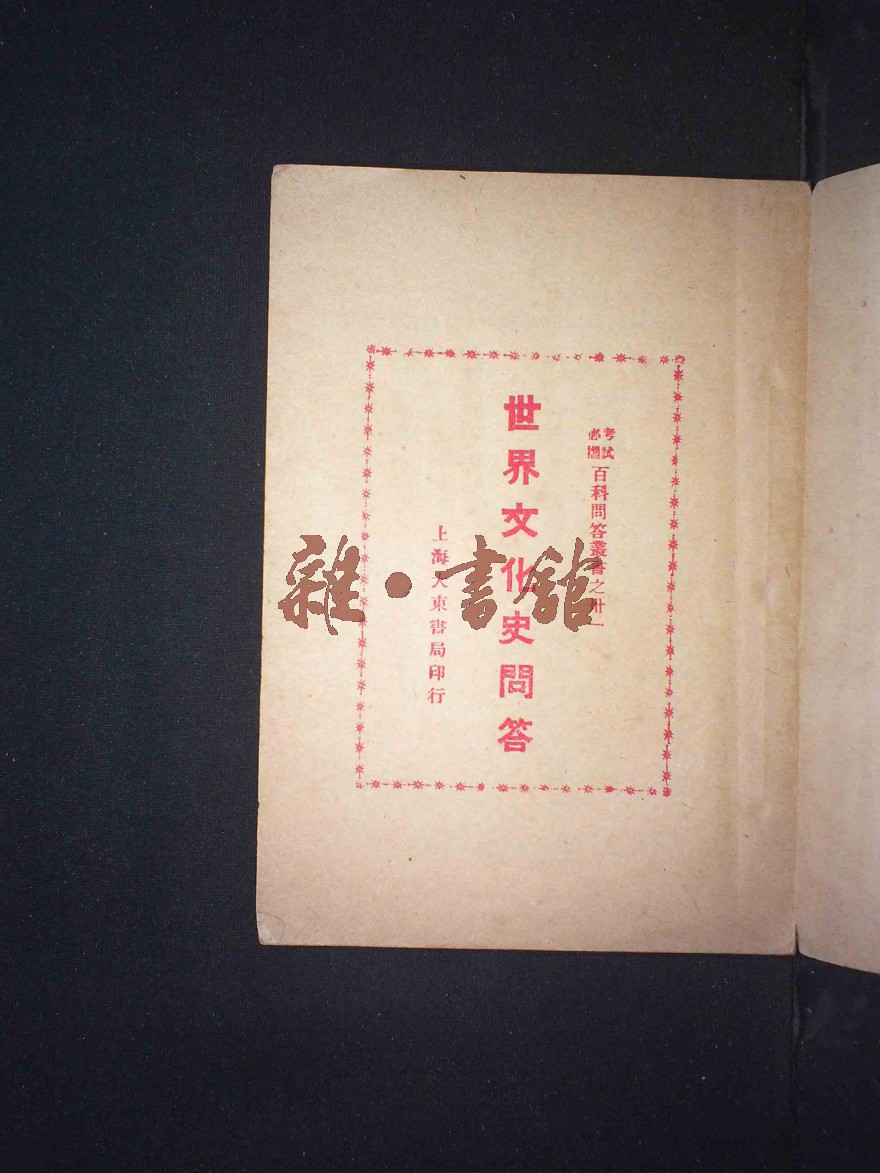 考試必攜 百科問答叢書之卅一
世界文化史問答
上海大東書局印行
雜·書館